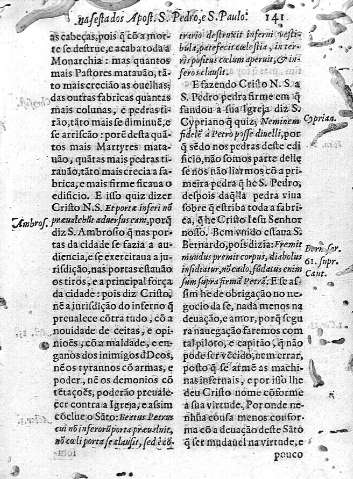 na festa dos Apost. S. Pedro, e S. Paulo. 141
as cabeças, pois q̃ cõ a mor-
te se destrue, e acaba toda a
Monarchia: mas quantos
mais Pastores matauão, tãto
mais crecião as ouelhas;
das outras fabricas quantas
mais colunas, e pedras ti-
rão, tãto mais se diminuẽ, e
se arriscão: porẽ desta quã-
tos mais Martyres mata-
uão, quãtas mais pedras ti-
rauão, tãto mais crecia a fa-
brica, e mais firme ficaua o
edificio. E isso quiz dizer
Cristo N.S. Et portæ inferi nõ
præualebũt aduersus eam, porq̃
Ambros.
diz S. Ambrosio q̃ nas por-
tas da cidade se fazia a au-
diencia, e se exercitaua a ju-
risdição, nas portas estauão
os tiros, e a principal força
da cidade: pois diz Cristo,
nẽ a jurisdição do inferno q̃
preualece cõtra tudo, cõ a
nouidade de ceitas, e opi-
niões, cõ a maldade, e en-
ganos dos inimigos d Deos,
nẽ os tyrannos cõ armas, e
poder, nẽ os demonios cõ
tẽtaçoẽs, poderão preuale-
cer contra a Igreja, e assim
cõclue o Sãto: Beatus Petrus
qui nõ inferorũ porta præualuit,
nõ cœli porta se clausit, sed è cõ-
trario destruxit inferni vesti-
bula, patefecit cælestia, in ter-
ris positus cælum aperuit, & in-
feros clausit.
E fazendo Cristo N. S. a
S. Pedro pedra firme em q̃
fundou a sua Igreja diz S.
Cyprian.
Cypriano q̃ quiz, Neminem
fidelẽ à Petro posse diuelli, por
q̃ sẽdo nos pedras deste edi-
ficio, não somos parte delle
se nos não liarmos cõ a pri-
meira pedra q̃ he S. Pedro,
despois daq̃lla pedra viua
sobre q̃ estriba toda a fabri-
ca, q̃ he Cristo Iesu Senhor
nosso. Bem vnido estaua S.
Bern. ser.
61. supr.
Cant.
Bernardo, pois dizia: Fremit
mundus premit corpus, diabolus
insiditur, nõ cado, fũdatus enim
sum supra firmã Petrã. E se as-
sim he de obrigação no ne-
gocio da fe, nada menos na
deuação, e amor, porq̃ segu-
ra nauegação faremos com
tal piloto, e capitão, q̃ não
pode ser vẽcido, nem errar,
posto q̃ se arme as machi-
nas infernais, e por isso lhe
deu Cristo nome cõforme
a sua virtude. Por onde ne-
nhũa cousa menos confor-
ma cõ a deuação deste Sãto
q̃ ser mudauel na virtude, e
pouco